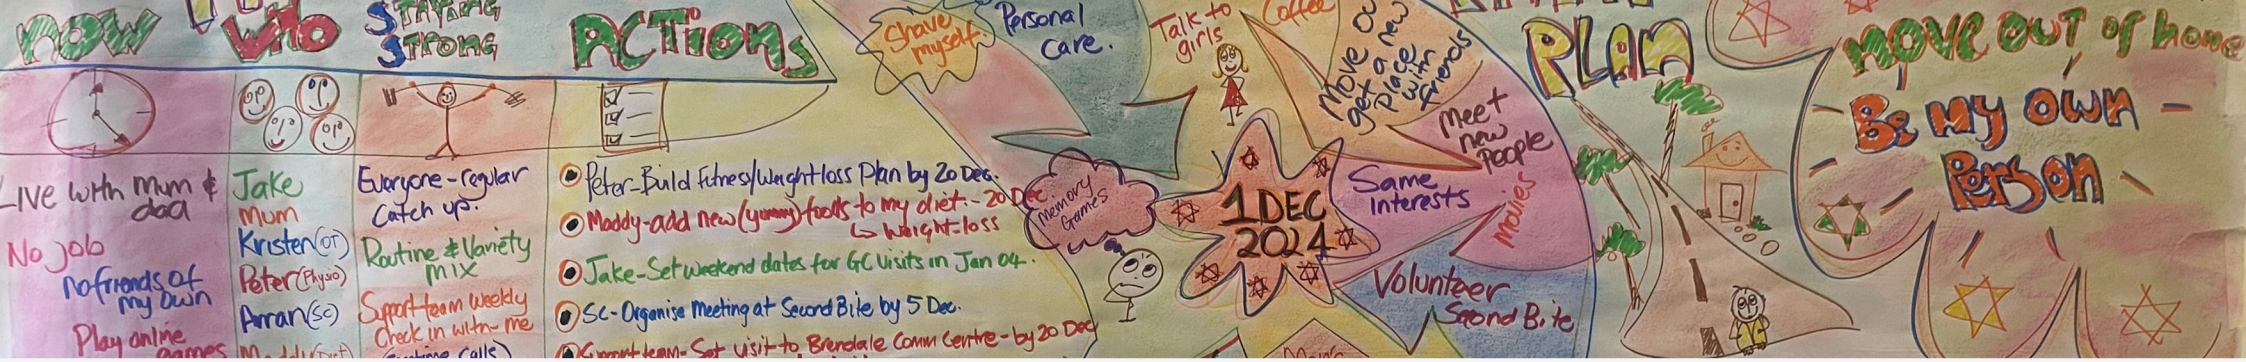 NOW
WHO
STAYING
STRONG
ACTIONS
Live with Mum &
dad
No job
no friends of
my own
Play online
games
Jake
Mum
Kristen (OT)
Peter (Physio)
Arran (SC)
Everyone - regular
Catch up.
Routine & Variety
mix
Support team weekly
Check in with me
calls)
Peter - Build fitness/Weightloss Plan by 20 Dec.
Maddy - add new (yummy) foods to my diet - 20 Dec
↳ Weight loss
Jake - Set weekend dates for GC Visits in Jan 04.
SC - Organise Meeting at Second Bite by 5 Dec.
Support team - Set visit to Brendale Comm Centre - by 20 Dec
Shave
myself.
Personal
Care.
Talk to
girls
Coffee
Move Out
get a new
place
with
friends
Meet
new
People
Same
Interests
Movies
Memory
Games
1 DEC
2024
Volunteer
Second Bite
Men's
PLAN
MOVE OUT of home
Be my own
Person